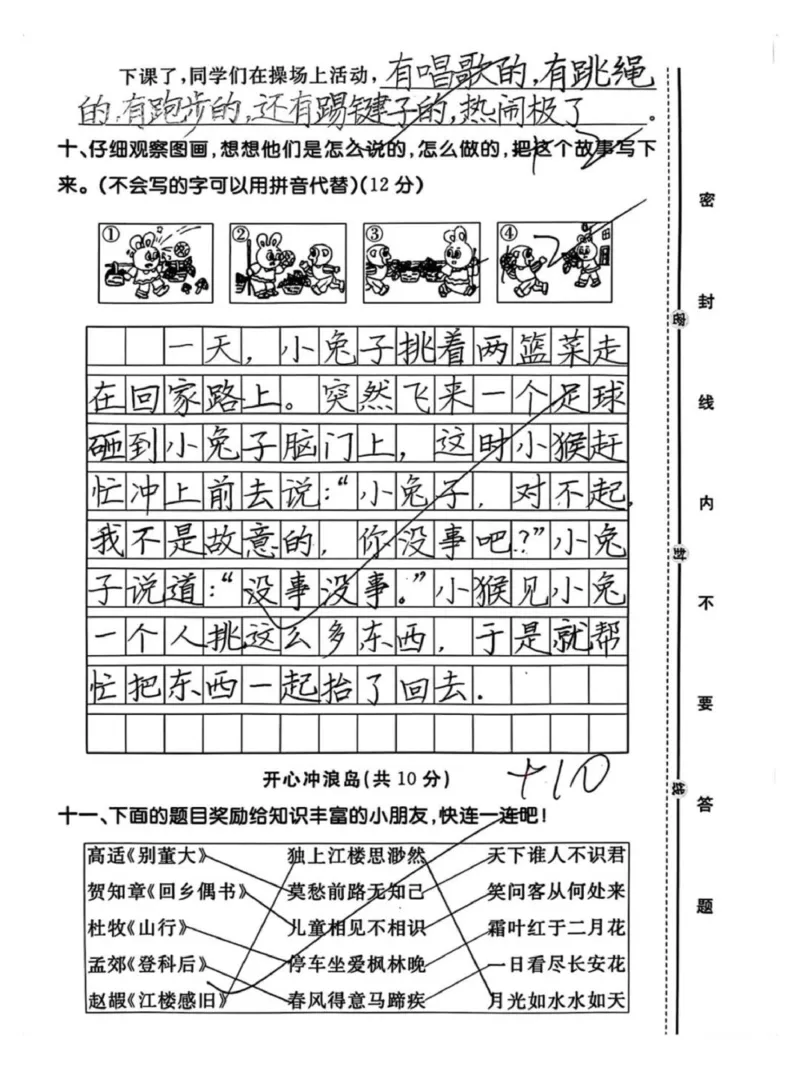 下课了，同学们在操场上活动，有唱歌的，有跳绳
的，有跑步的，还有踢毽子的，热闹极了。
十、仔细观察图画，想想他们是怎么说的，怎么做的，把这个故事写下
来。（不会写的字可以用拼音代替）（12分）
①
②
③
④
一天，小兔子挑着两篮菜走
在回家路上。突然飞来一个足球
砸到小兔子脑门上，这时小猴赶
忙冲上前去说：“小兔子，对不起，
我不是故意的，你没事吧？”小兔
子说道：“没事没事。”小猴见小兔
一个人挑这么多东西，于是就帮
忙把东西一起抬了回去.
开心冲浪岛（共10分）
+10
十一、下面的题目奖励给知识丰富的小朋友，快连一连吧！
高适《别董大》 独上江楼思渺然 天下谁人不识君
贺知章《回乡偶书》 莫愁前路无知己 笑问客从何处来
杜牧《山行》 儿童相见不相识 霜叶红于二月花
孟郊《登科后》 停车坐爱枫林晚 一日看尽长安花
赵嘏《江楼感旧》 春风得意马蹄疾 月光如水水如天
密
封
线
内
不
要
答
题
密
封
线